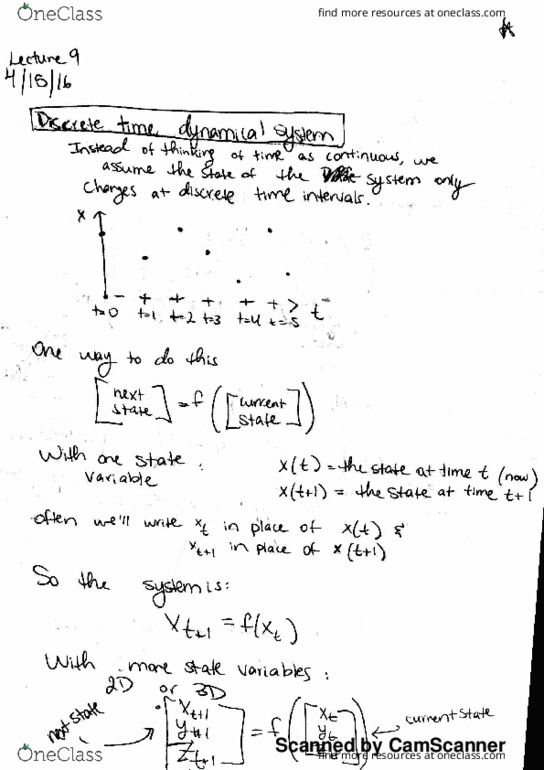 OneClass
find more resources at oneclass.com
Lecture 9
4/18/16
Discrete time dynamical system
Instead of thinking of time as continuous, we
assume the state of the system only
changes at discrete time intervals.
x
t=0 t=1 t=2 t=3 t=4 t=5 t
One way to do this
[next state] = f([current state])
With one state variable:
x(t) = the state at time t (now)
x(t+1) = the state at time t+1
often we'll write x_t in place of x(t) &
x_t+1 in place of x(t+1)
So the system is:
X_t+1 = f(x_t)
With more state variables:
2D or 3D
next state
[x_t+1 y_t+1 z_t+1] = f([x_t y_t
current state
Scanned by CamScanner
OneClass
find more resources at oneclass.com